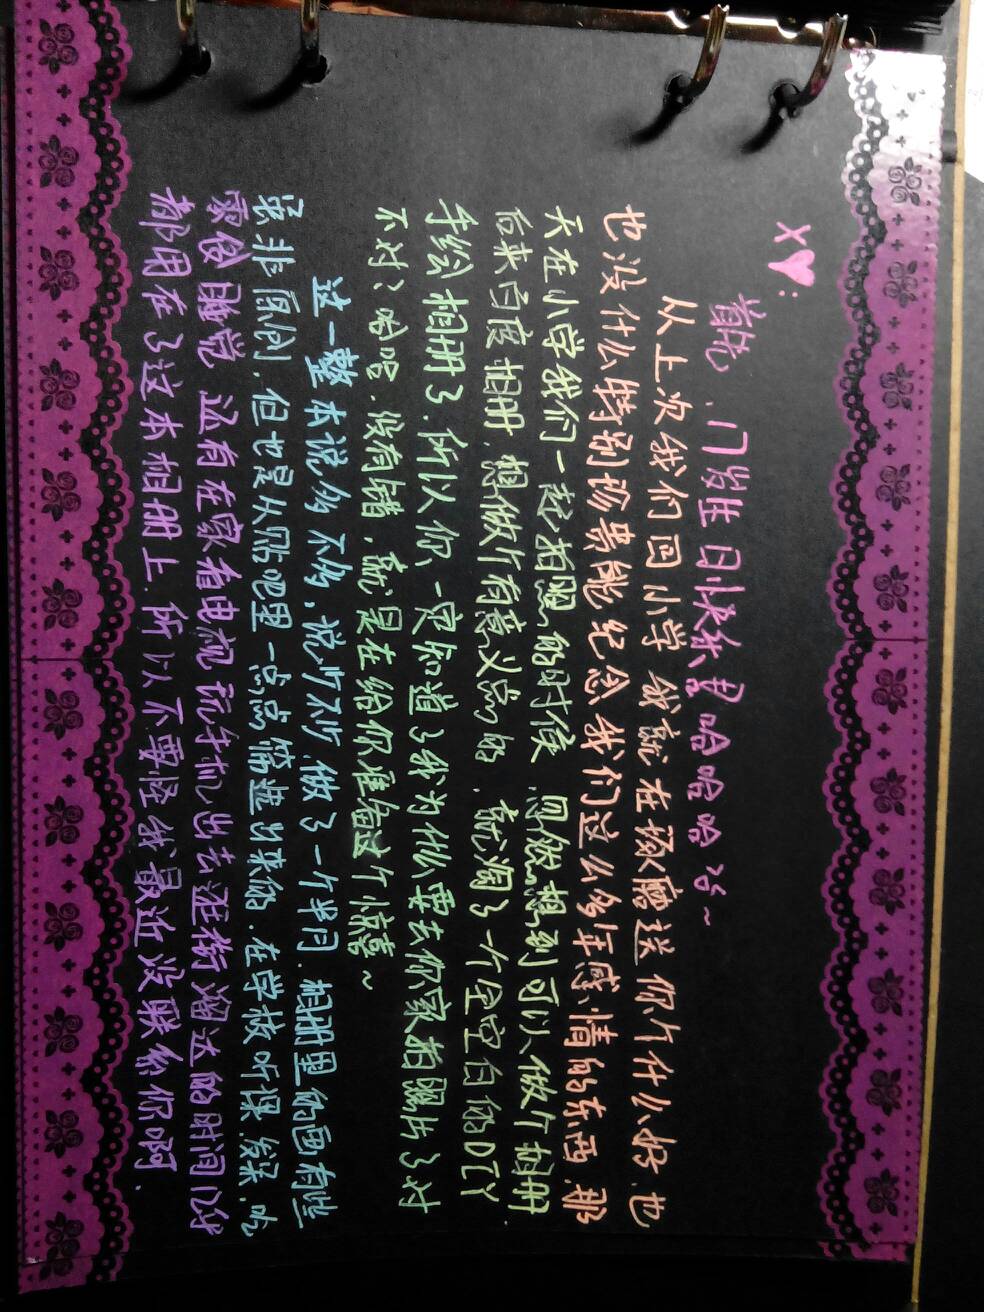 X♥:
首先,门发生日快乐啊哈哈哈哈~
从上次我们回小学 我就在琢磨送你个什么好.也
也没什么特别珍贵能纪念我们这么多年感情的东西.那
天在小学我们一起拍照的时候.忽然想到可以做个相册
后来百度相册.想做个有意义点的.就淘了一个全空白的DIY
手绘相册了.所以你一定知道了我为什么要去你家拍照片了对
不对?哈哈.没有错.就是在给你准备这个惊喜~
这一整本说多不多,说少不少.做了一个半月.相册里的画有些
是非原创.但也是从贴吧里一点点筛选出来的.在学校听课 .吃
零食 睡觉 还有在家看电视玩手机出去逛街溜达的时间几乎
都用在了这本相册上.所以不要怪我最近没联系你啊.